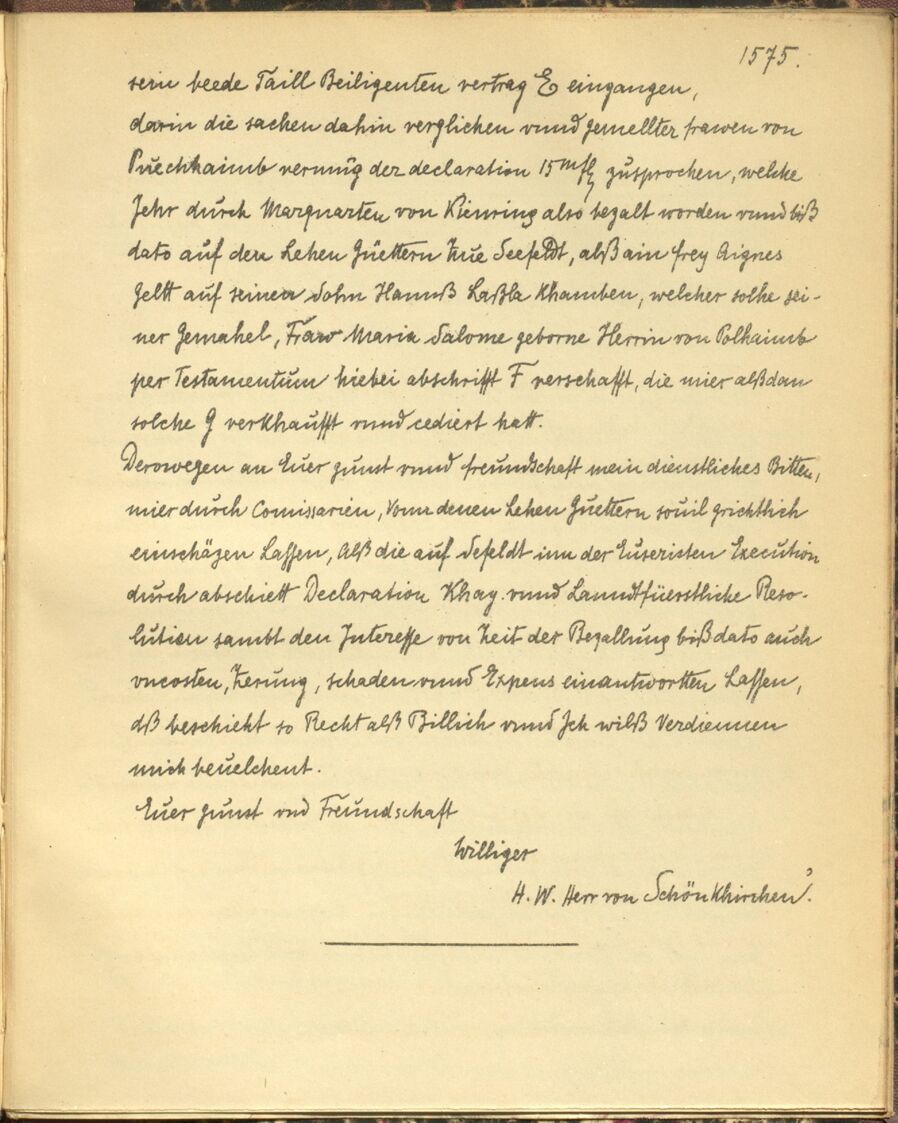 1575.
sein beede Taill Beiligenten vertrag E eingangen,
darin die sachen dahin verglichen vnnd gemellter frawen von
Puechhaimb vermüg der declaration 15 m fl zusprochen, welche
Jehr durch Marquarten von Kienring also bezalt worden vnnd biß
dato auf den Lehen Güettern Zue Seefeldt, alß ain frey Aignes
Geltt auf seinen Sohn Hannß Laßla Khamben, welcher solhe sei-
ner Gemahel, Fraw Maria Salome geborne Herrin von Polhaimb
per Testamentum hiebei abschrifft F verschafft, die mier alßdan
solche G verkhaufft vnnd cediert hatt.
Derowegen an Euer gunst vnnd freundschaft mein dienstliches Bitten,
mier durch Comissarien, Vonn denen Lehen Guettern souil grichtlich
einschäzen Lassen, Alß die auf Sefeldt inn der Euseristen Execution
durch abschiett Declaration Khay. vnnd Lanndtfüerstliche Reso-
lution sambt den Interesse von Zeit der Bezallung biß dato auch
vncosten, Zerung, schaden vnnd Expens einantwortten Lassen,
dß beschieht so Recht alß Billich vnnd Jch wilß Verdiennen
mich beuelchent.
Euer gunst vnd Freundschaft
Williger
H. W. Herr von Schönkhirchen.